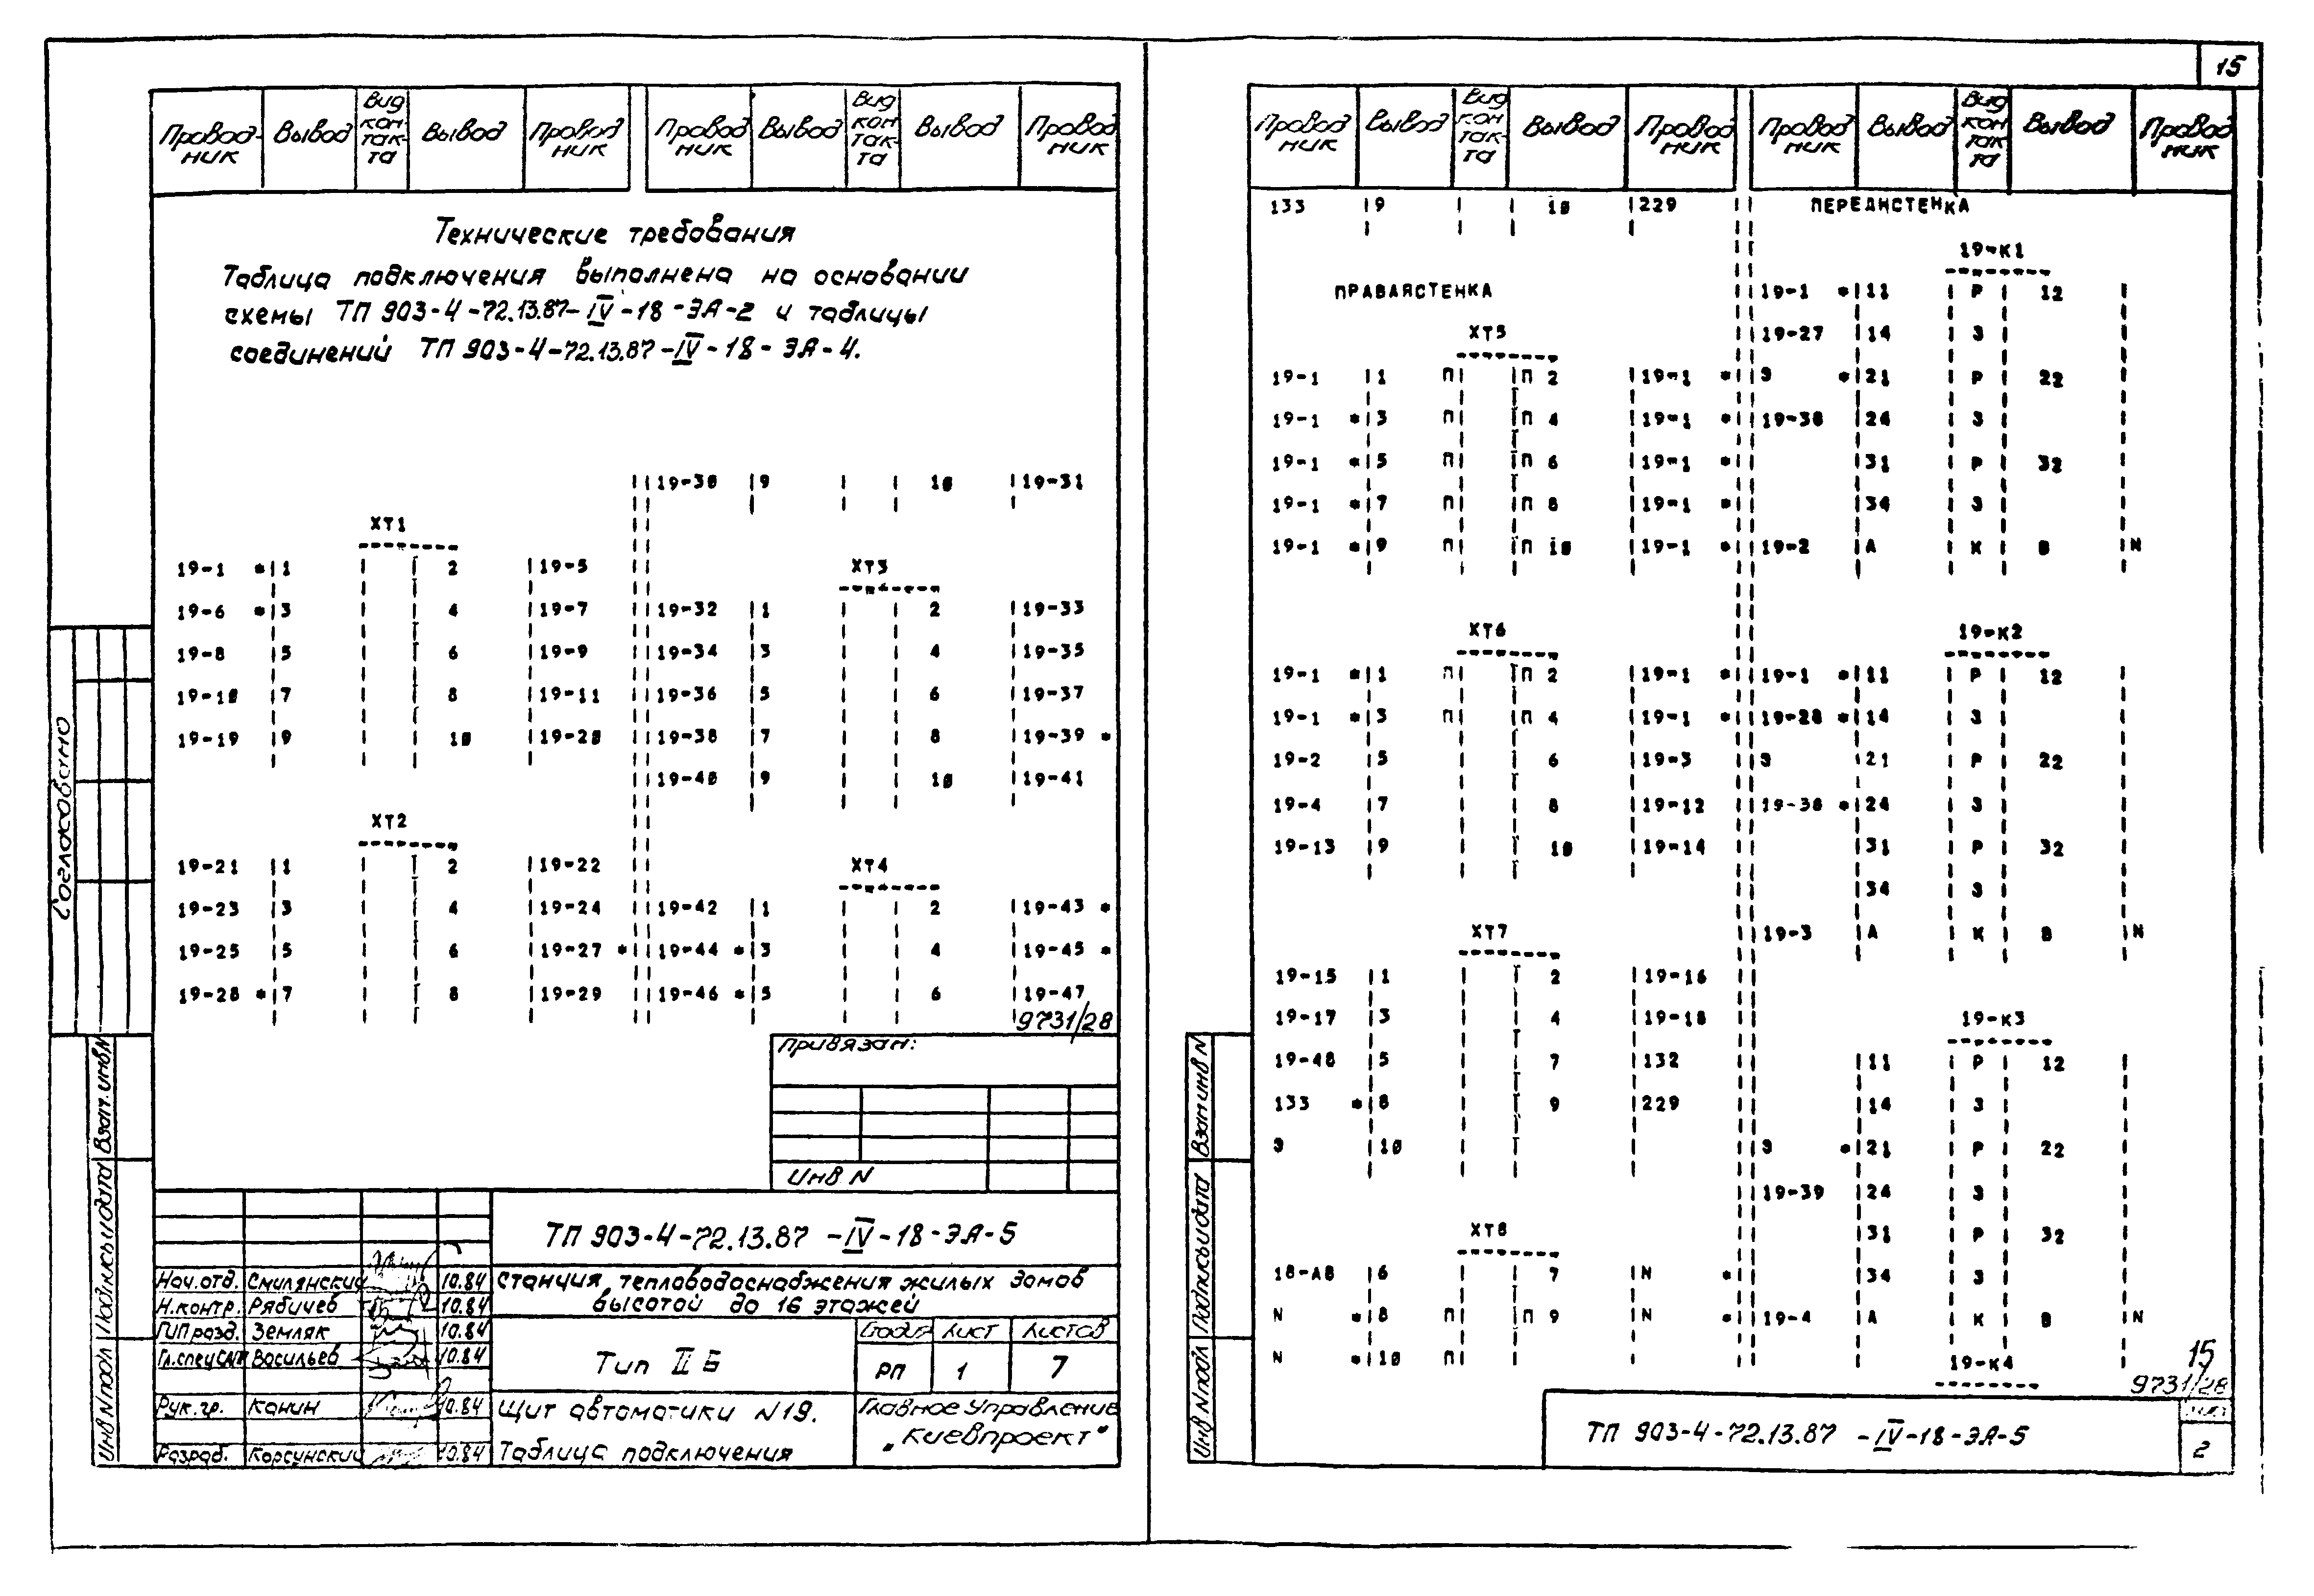 15
Провод- Вывод Вид Вывод Провод Провод Вывод Вид Вывод Провод
ник контакта ник ник контакта ник
Технические требования
Таблица подключения выполнена на основании
схемы ТП 903-4-72.13.87-IV-18-ЭА-2 и таблицы
соединений ТП 903-4-72.13.87-IV-18-ЭА-4.
XT1
19-1 *|1 2 |19-5
19-6 *|3 4 |19-7
19-8 |5 6 |19-9
19-10 |7 8 |19-11
19-19 |9 10 |19-20
XT2
19-21 |1 2 |19-22
19-23 |3 4 |19-24
19-25 |5 6 |19-27 *
19-28 *|7 8 |19-29
19-30 |9 10 |19-31
XT3
19-32 |1 2 |19-33
19-34 |3 4 |19-35
19-36 |5 6 |19-37
19-38 |7 8 |19-39 *
19-40 |9 10 |19-41
XT4
19-42 |1 2 |19-43 *
19-44 *|3 4 |19-45 *
19-46 *|5 6 |19-47
9731/28
Привязан:
Инв N
ТП 903-4-72.13.87 -IV-18-ЭА-5
Нач.отд. Смилянский 10.84
Н.контр. Рябичев 10.84
ГИП разд. Земляк 10.84
Гл.спец Васильев 10.84
Рук.гр. Канин 10.84
Разраб. Корсунский 10.84
Станция тепловодоснабжения жилых домов
высотой до 16 этажей
Тип II Б
Стадия Лист Листов
РП 1 7
Щит автоматики N19.
Таблица подключения
Главное Управление
„Киевпроект"
Согласовано
Инв N подл Подпись и дата Взам.инв N
Провод Вывод Вид Вывод Провод Провод Вывод Вид Вывод Провод
ник контакта ник ник контакта ник
133 |9 10 |229
ПРАВАЯСТЕНКА
XT5
19-1 |1 П П 2 |19-1 *
19-1 *|3 П П 4 |19-1 *
19-1 *|5 П П 6 |19-1 *
19-1 *|7 П П 8 |19-1 *
19-1 *|9 П П 10 |19-1 *
XT6
19-1 *|1 П П 2 |19-1 *
19-1 *|3 П П 4 |19-1 *
19-2 |5 6 |19-3
19-4 |7 8 |19-12
19-13 |9 10 |19-14
XT7
19-15 |1 2 |19-16
19-17 |3 4 |19-18
19-48 |5 7 |132
133 *|8 9 |229
Э |10
XT8
18-А8 |6 7 |N *
N *|8 П П 9 |N *
N *|10 П
ПЕРЕДНСТЕНКА
19-К1
19-1 *|11 Р 12
19-27 |14 З
Э *|21 Р 22
19-38 |24 З
|31 Р 32
|34 З
19-2 |А К В |N
19-К2
19-1 *|11 Р 12
19-28 *|14 З
Э |21 Р 22
19-38 *|24 З
|31 Р 32
|34 З
19-3 |А К В |N
19-К3
|11 Р 12
|14 З
Э *|21 Р 22
19-39 |24 З
|31 Р 32
|34 З
19-4 |А К В |N
19-К4
15
9731/28
ТП 903-4-72.13.87 -IV-18-ЭА-5
Лист
2
Инв N подл Подпись и дата Взам инв N